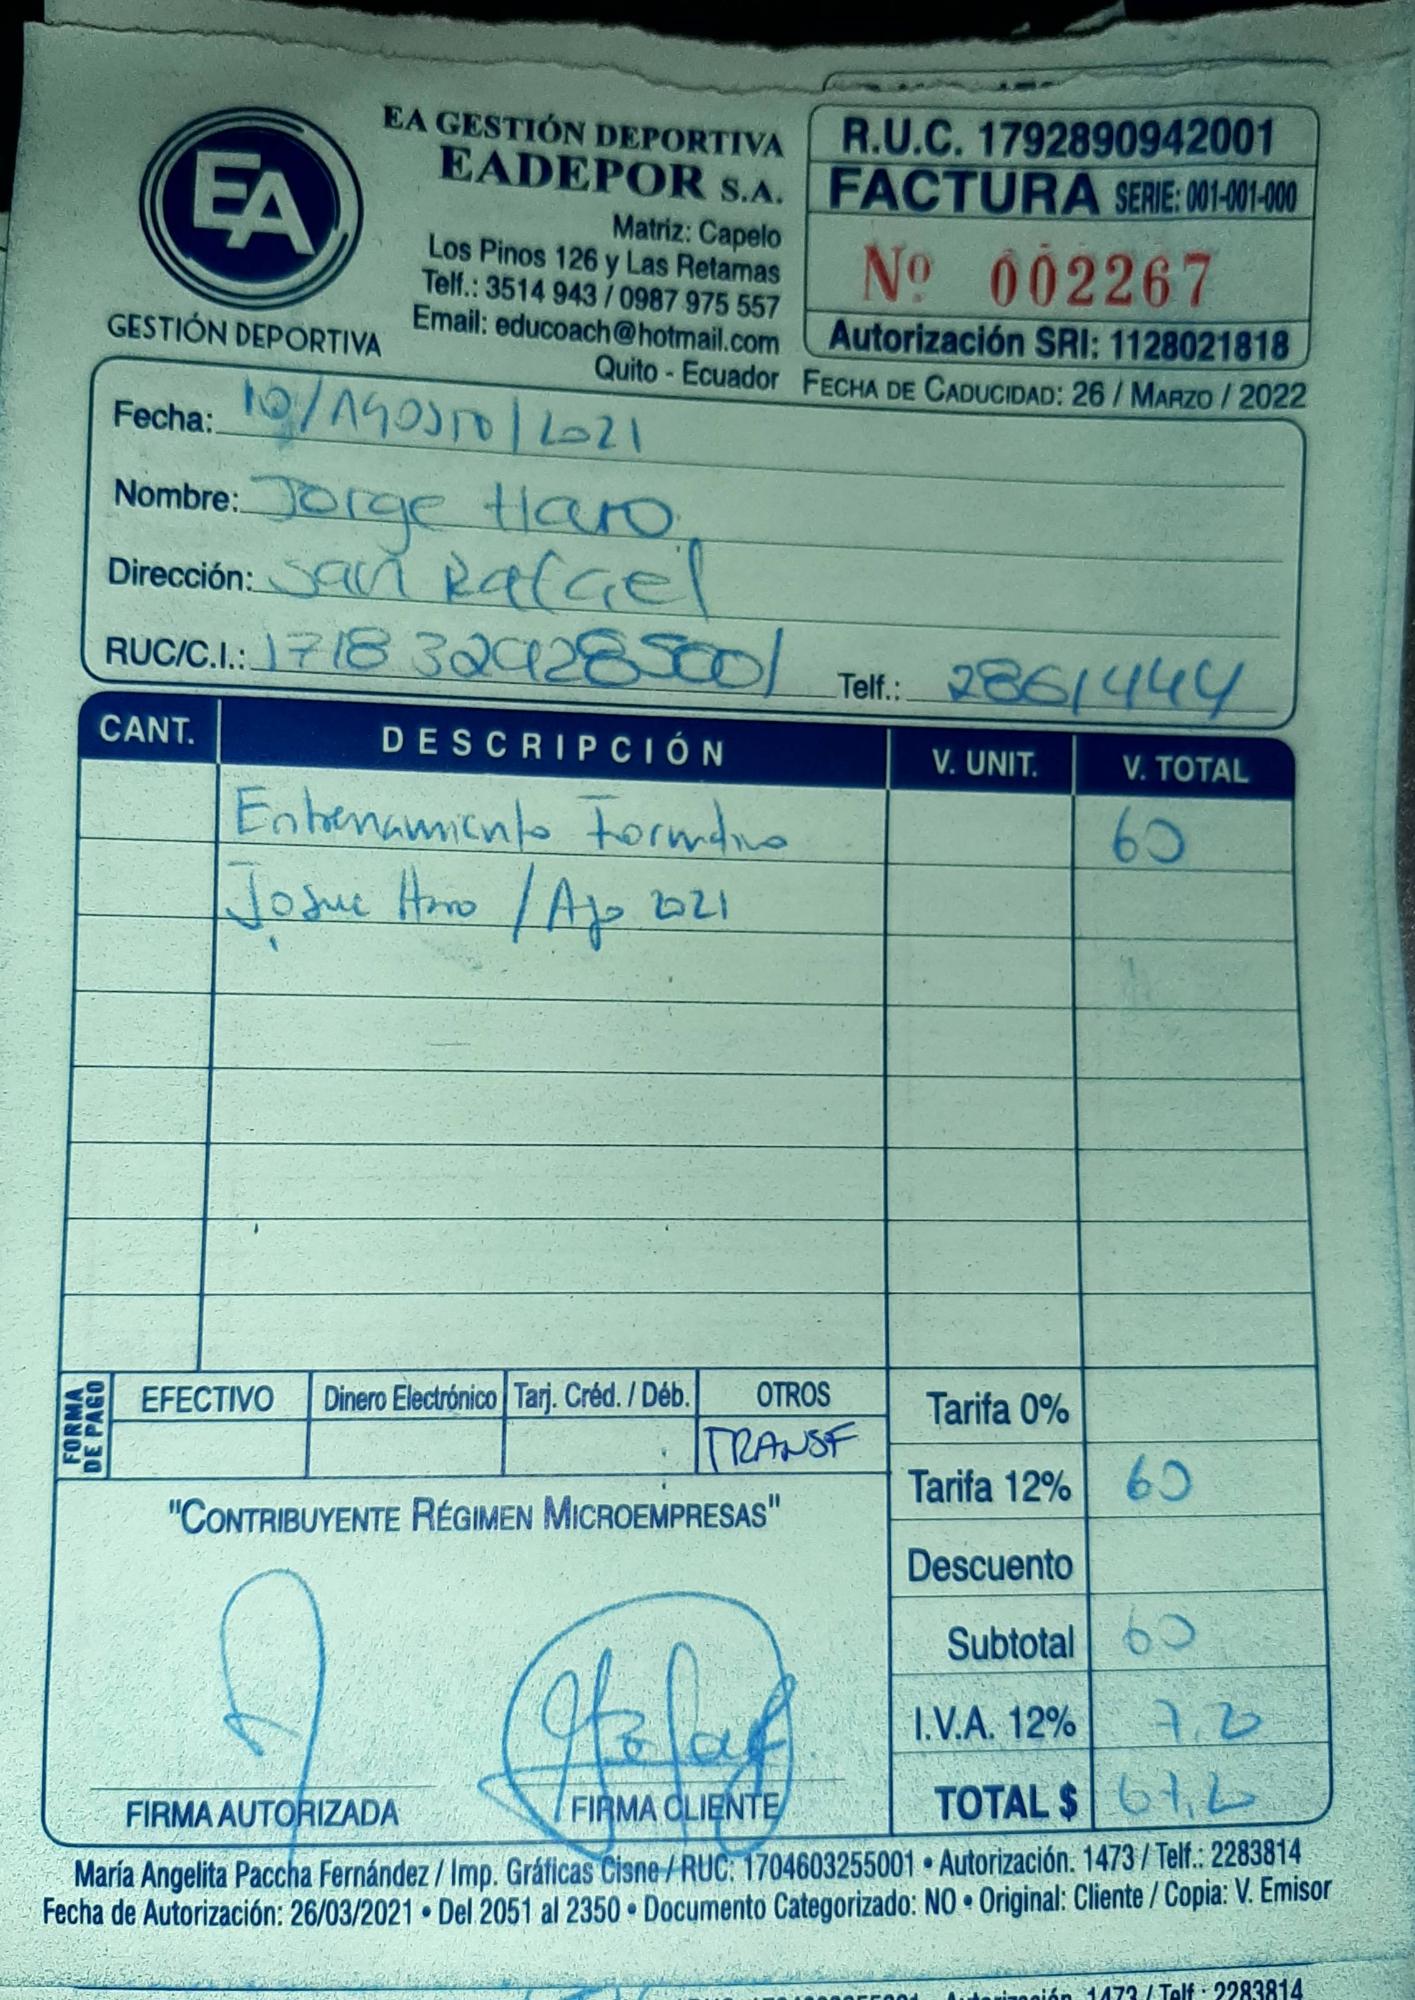 EA
GESTIÓN DEPORTIVA
EA GESTIÓN DEPORTIVA
EADEPOR S.A.
Matriz: Capelo
Los Pinos 126 y Las Retamas
Telf.: 3514 943 / 0987 975 557
Email: educoach@hotmail.com
Quito - Ecuador
R.U.C. 1792890942001
FACTURA SERIE: 001-001-000
Nº 002267
Autorización SRI: 1128021818
FECHA DE CADUCIDAD: 26 / MARZO / 2022
Fecha: 10/AGOSTO/2021
Nombre: Jorge Haro
Dirección: San Rafael
RUC/C.I.: 1718329285001 Telf.: 2861444
CANT. DESCRIPCIÓN V. UNIT. V. TOTAL
Entrenamiento Formativo 60
Josue Haro / Ago 2021
FORMA DE PAGO
EFECTIVO Dinero Electrónico Tarj. Créd. / Déb. OTROS
TRANSF
Tarifa 0%
Tarifa 12% 60
Descuento
Subtotal 60
I.V.A. 12% 7,20
TOTAL $ 67,20
"CONTRIBUYENTE RÉGIMEN MICROEMPRESAS"
FIRMA AUTORIZADA FIRMA CLIENTE
María Angelita Paccha Fernández / Imp. Gráficas Cisne / RUC: 1704603255001 • Autorización. 1473 / Telf.: 2283814
Fecha de Autorización: 26/03/2021 • Del 2051 al 2350 • Documento Categorizado: NO • Original: Cliente / Copia: V. Emisor
Autorización. 1473 / Telf.: 2283814